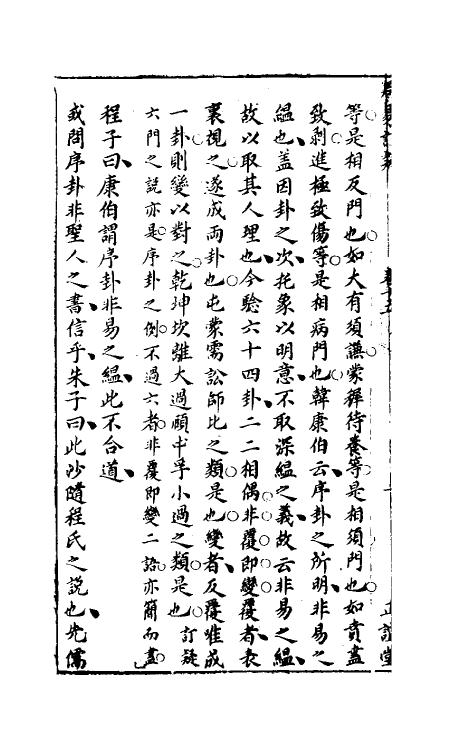 等是相反門也如大有須謙蒙穉待養等是相須門也如賁盡
致剥進極致傷等是相病門也韓康伯云序卦之所明非易之
緼也蓋因卦之次托象以明意不取深緼之義故云非易之緼
故以取其人理也今驗六十四卦二二相偶非覆即變覆者表
裏視之遂成兩卦也屯蒙需訟師比之類是也變者反覆唯成
一卦則變以對之乾坤坎離大過頤中孚小過之類是也訂疑
六門之説亦是序卦之例不過六者非覆即變二語亦簡而盡
程子曰康伯謂序卦非易之緼此不合道
或問序卦非聖人之書信乎朱子曰此沙隨程氏之説也先儒